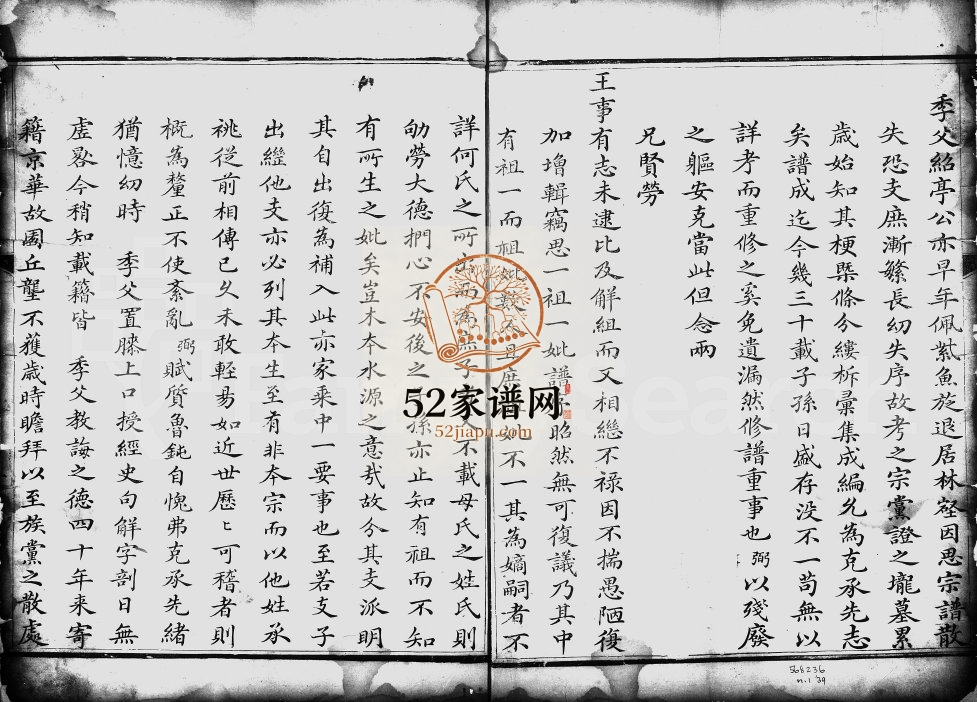 季父紹亭公亦早年佩紫魚於退居林壑因思宗譜散
失恐支庶漸繁長幼失序故考之宗黨證之壠墓累
歲始知其梗槩條分縷柝彙集成編允為克承先志
矣譜成迄今幾三十載子孫日盛存没不一苟無以
詳考而重修之奚免遺漏然修譜重事也弼以殘廢
之軀安克當此但念兩
兄賢勞
王事有志未逮比及解組而又相繼不禄因不揣愚陋復
加增輯竊思一祖一妣譜 昭然無可復議乃其中
有祖一而祖妣數 不一其為嫡嗣者不
詳何氏之所 不載母氏之姓氏則
劬勞大德捫心不安後之 孫亦止知有祖而不知
有所生之妣矣豈木本水源之意哉故分其支派明
其自出復為補入此亦家乘中一要事也至若支子
出繼他支亦必列其本生至有非本宗而以他姓承
祧從前相傳已久未敢輕易如近世歷〻可稽者則
概為釐正不使紊亂弼賦質魯鈍自愧弗克承先緒
猶憶幼時 季父置膝上口授經史句解字剖日無
虛晷今稍知載籍皆 季父教誨之德四十年来寄
籍京華故園丘壟不獲歲時瞻拜以至族黨之散處
52家谱网
52jiapu.com
568236
n.1 '39